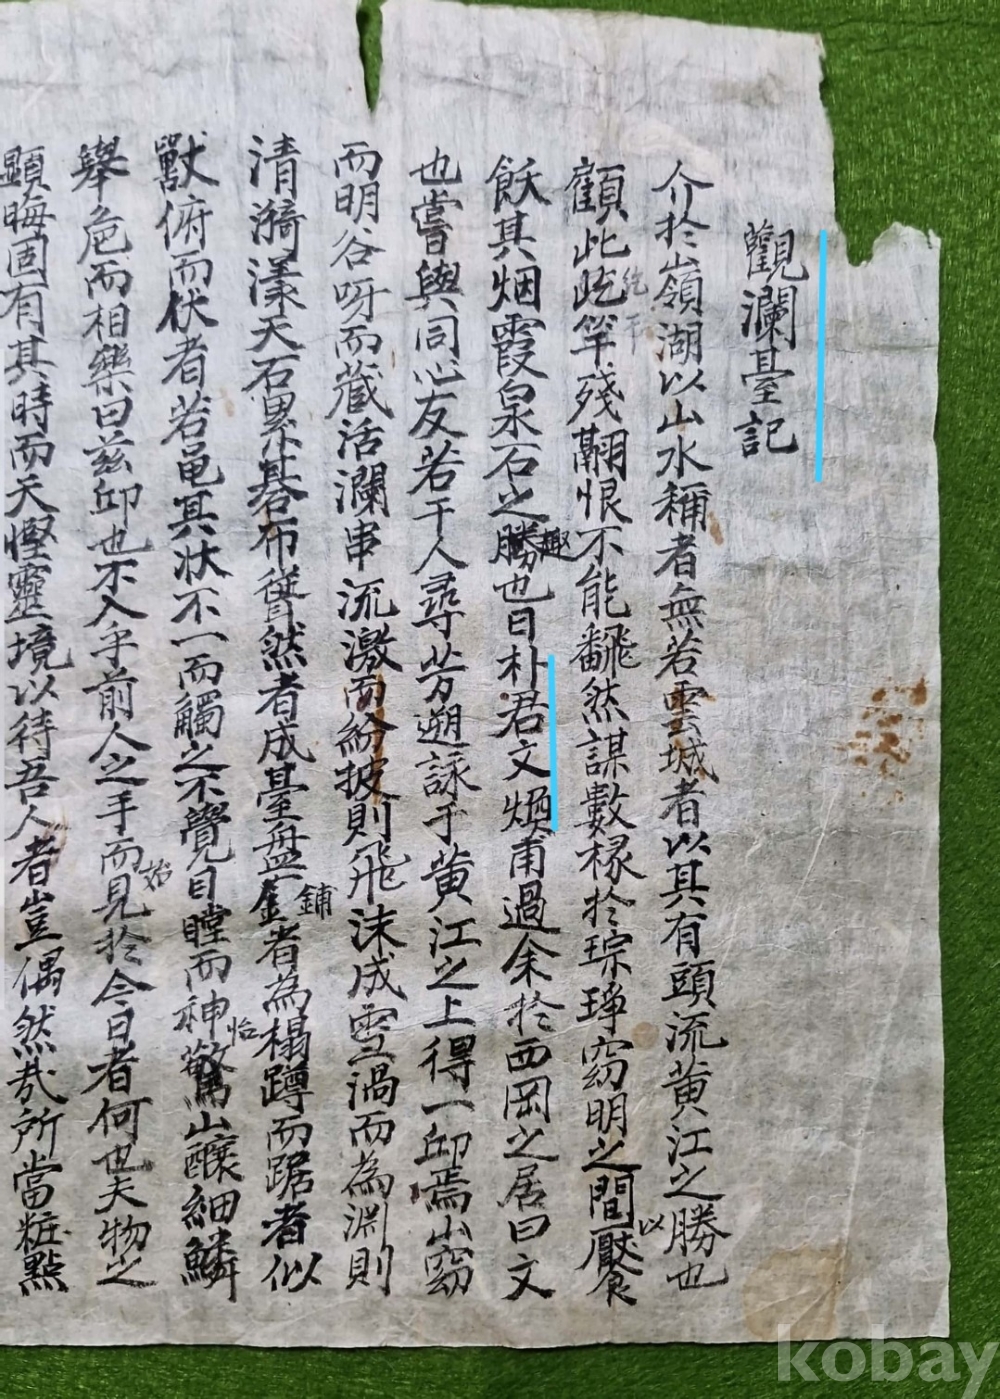 觀瀾臺記
介於嶺湖以山水稱者無若雲城者以其有頭流黃江之勝也
顧此屹罕殘翮恨不能翻然謀數椽於琮琤窈明之間以饜
飫其烟霞泉石之勝趣也日朴君文煥甫過余於西岡之居曰文
也嘗與同心友若干人尋芳遡詠于黃江之上得一邱焉山窈
而明谷呀而藏活瀾串流激而紛披則飛沫成雪渦而為淵則
清漪漾天石累碁布聳然者成臺盤鋪者為榻蹲而踞者似
獸俯而伏者若黽其狀不一而觸之不覺目瞠而神怡驚山釀細鱗
舉危而相樂曰茲邱也不入乎前人之手而始見於今日者何也夫物之
顯晦固有其時而天慳靈境以待吾人者豈偶然哉所當粧點
kobay